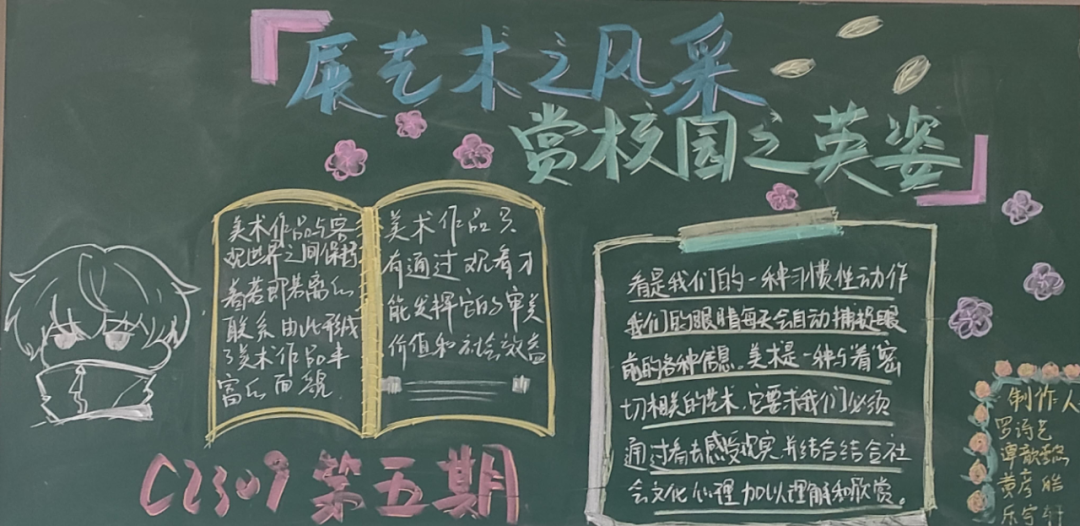 展艺术之风采
赏校园之英姿
美术作品与客
观世界之间保持
着若即若离的
联系由此形成
了美术作品丰
富的面貌
美术作品只
有通过观看才
能发挥它的审美
价值和社会效益
看是我们的一种习惯性动作
我们的眼睛每天会自动捕捉眼
前的各种信息。美术是一种与看密
切相关的艺术,它要求我们必须
通过看去感受现实并结合结合社
会文化心理加以理解和欣赏。
C2309第五期
制作人
罗诗艺
谭歆
黄彦
乐宇轩